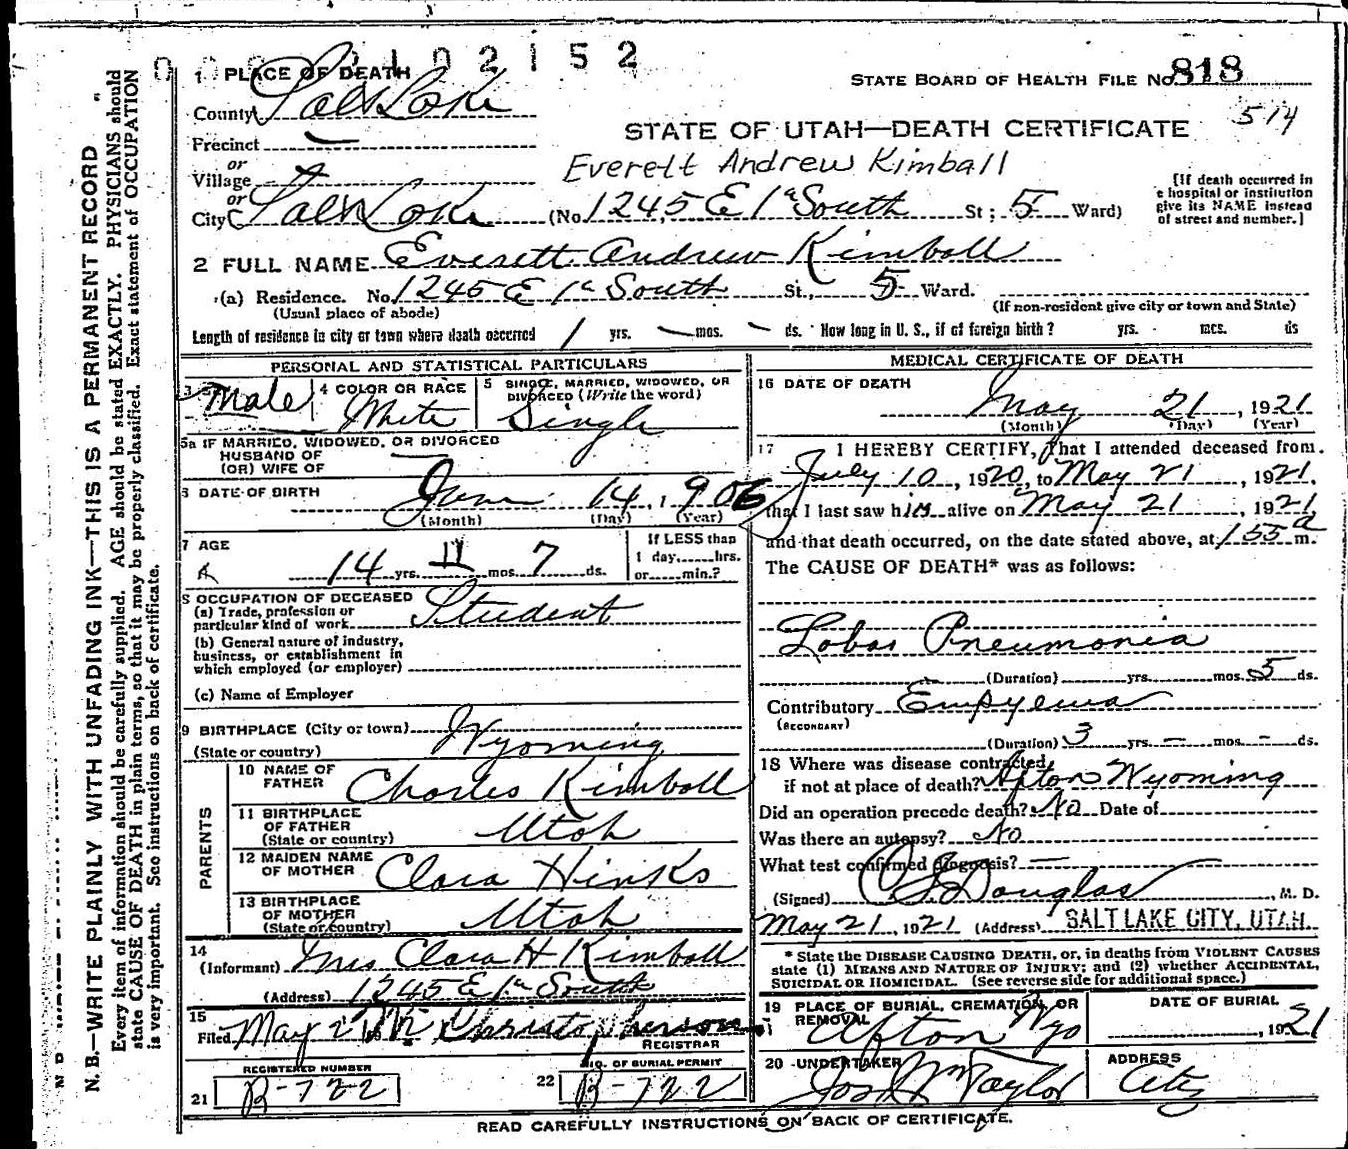 0 0 0 2 1 0 2 1 5 2
1 PLACE OF DEATH
STATE BOARD OF HEALTH FILE No. 818
County Salt Lake
514
STATE OF UTAH—DEATH CERTIFICATE
Precinct
Everett Andrew Kimball
or
Village
or
City Salt Lake (No. 1245 E 1st South St; 5 Ward)
[If death occurred in
a hospital or institution
give its NAME instead
of street and number.]
2 FULL NAME Everett Andrew Kimball
(a) Residence. No. 1245 E 1st South St., 5 Ward.
(Usual place of abode)
(If non-resident give city or town and State)
Length of residence in city or town where death occurred 1 yrs. — mos. — ds. How long in U. S., if of foreign birth? yrs. mos. ds
PERSONAL AND STATISTICAL PARTICULARS
3 Male
4 COLOR OR RACE White
5 SINGLE, MARRIED, WIDOWED, OR
DIVORCED (Write the word)
Single
5a IF MARRIED, WIDOWED, OR DIVORCED
HUSBAND OF
(OR) WIFE OF
6 DATE OF BIRTH June 14, 1906
(Month) (Day) (Year)
7 AGE 14 yrs. 11 mos. 7 ds.
If LESS than
1 day,......hrs.
or......min.?
8 OCCUPATION OF DECEASED
(a) Trade, profession or
particular kind of work Student
(b) General nature of industry,
business, or establishment in
which employed (or employer)
(c) Name of Employer
9 BIRTHPLACE (City or town)
(State or country) Wyoming
PARENTS
10 NAME OF
FATHER Charles Kimball
11 BIRTHPLACE
OF FATHER
(State or country) Utah
12 MAIDEN NAME
OF MOTHER Clara Hinks
13 BIRTHPLACE
OF MOTHER
(State or country) Utah
14
(Informant) Mrs Clara H Kimball
(Address) 1245 E 1st South
15
Filed May 21 Christopherson
REGISTRAR
REGISTERED NUMBER
21 B-722
NO. OF BURIAL PERMIT
22 B-722
MEDICAL CERTIFICATE OF DEATH
16 DATE OF DEATH
May 21, 1921
(Month) (Day) (Year)
17 I HEREBY CERTIFY, That I attended deceased from
July 10, 1920, to May 21, 1921,
that I last saw him alive on May 21, 1921,
and that death occurred, on the date stated above, at 1 55 a m.
The CAUSE OF DEATH* was as follows:
Lobar Pneumonia
(Duration) yrs. mos. 5 ds.
Contributory Empyema
(SECONDARY)
(Duration) 3 yrs. — mos. — ds.
18 Where was disease contracted,
if not at place of death? Afton Wyoming
Did an operation precede death? No Date of
Was there an autopsy? No
What test confirmed diagnosis? —
(Signed) Douglas, M. D.
May 21, 1921 (Address) SALT LAKE CITY, UTAH.
* State the DISEASE CAUSING DEATH, or, in deaths from VIOLENT CAUSES
state (1) MEANS AND NATURE OF INJURY; and (2) whether ACCIDENTAL,
SUICIDAL OR HOMICIDAL. (See reverse side for additional space.)
19 PLACE OF BURIAL, CREMATION, OR
REMOVAL
Afton Wyo
DATE OF BURIAL
, 1921
20 UNDERTAKER
Jos Wm Taylor
ADDRESS
City
READ CAREFULLY INSTRUCTIONS ON BACK OF CERTIFICATE.
N. B.—WRITE PLAINLY WITH UNFADING INK—THIS IS A PERMANENT RECORD
Every item of information should be carefully supplied. AGE should be stated EXACTLY. PHYSICIANS should
state CAUSE OF DEATH in plain terms, so that it may be properly classified. Exact statement of OCCUPATION
is very important. See instructions on back of certificate.